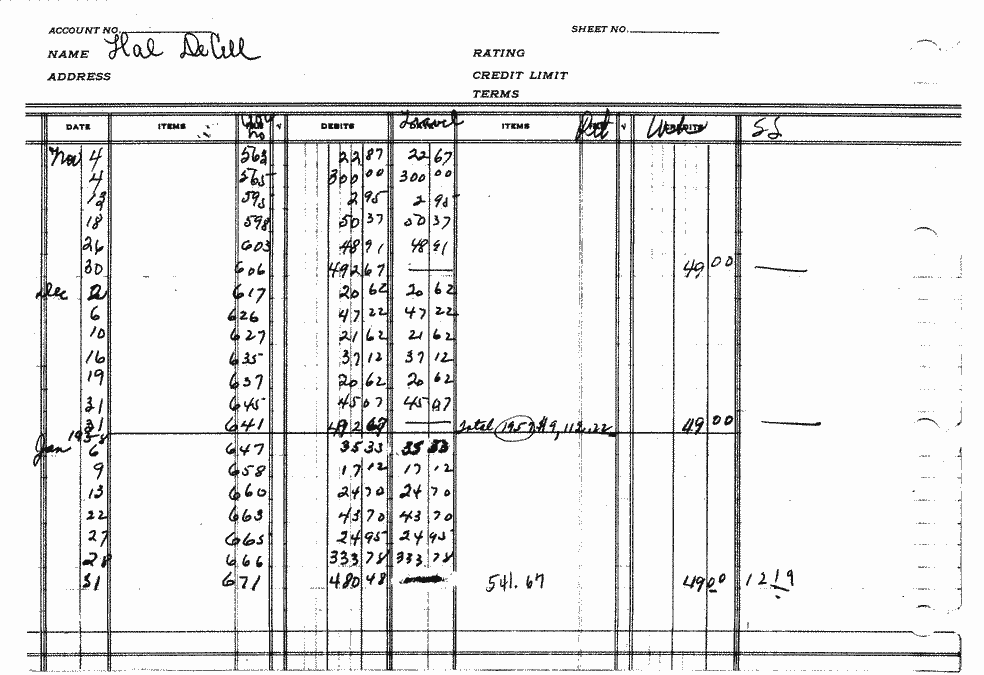 ACCOUNT NO. SHEET NO.
NAME Hal DeCell RATING
ADDRESS CREDIT LIMIT
TERMS
DATE ITEMS No DEBITS Travel ITEMS Withho SS
Nov 4 562 22 87 22 67
4 565 300 00 300 00
595 2 95 2 95
18 598 50 37 50 37
26 603 48 91 48 91
30 606 492 67 — 49 00 —
Dec 2 617 20 62 20 62
6 626 47 22 47 22
10 627 21 62 21 62
16 635 37 12 37 12
19 637 20 62 20 62
31 645 45 07 45 07
31 641 492 67 — Total 1957 $9,112.22 49 00 —
1958
Jan 6 647 35 33 35 33
9 658 17 12 17 12
13 660 24 70 24 70
22 663 43 70 43 70
27 665 24 95 24 95
28 666 333 78 333 78
31 671 480 48 541.67 49 00 12 19